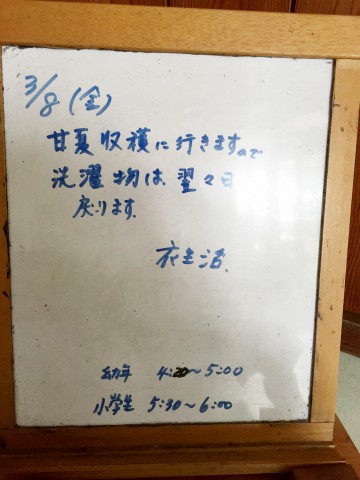 3/8(金)
甘夏収穫に行きますので
洗濯物は翌々日
戻ります.
衣生活.
幼年 4:20〜5:00
小学生 5:30〜6:00